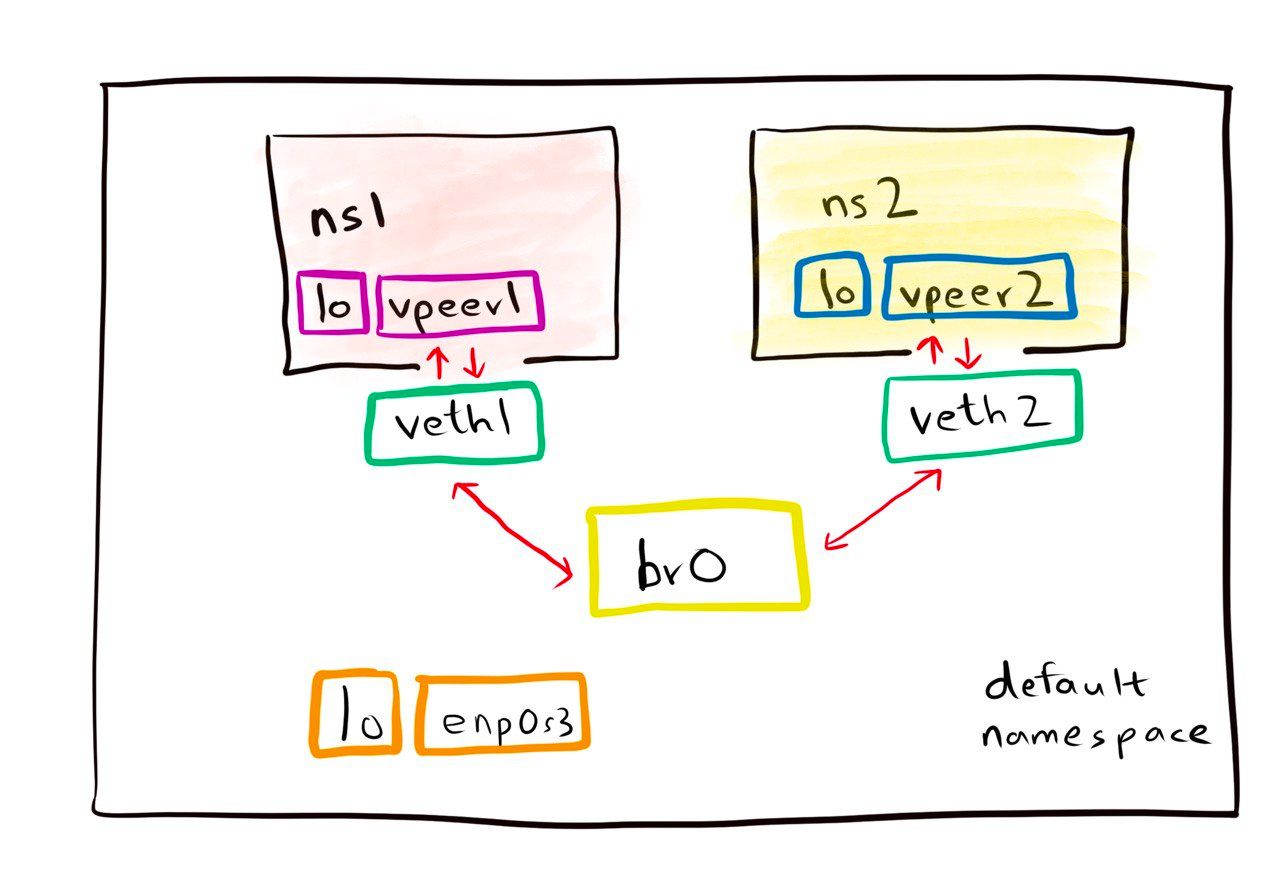 ns1
lo vpeer1
ns2
lo vpeer2
veth1
veth2
br0
lo enp0s3
default
namespace